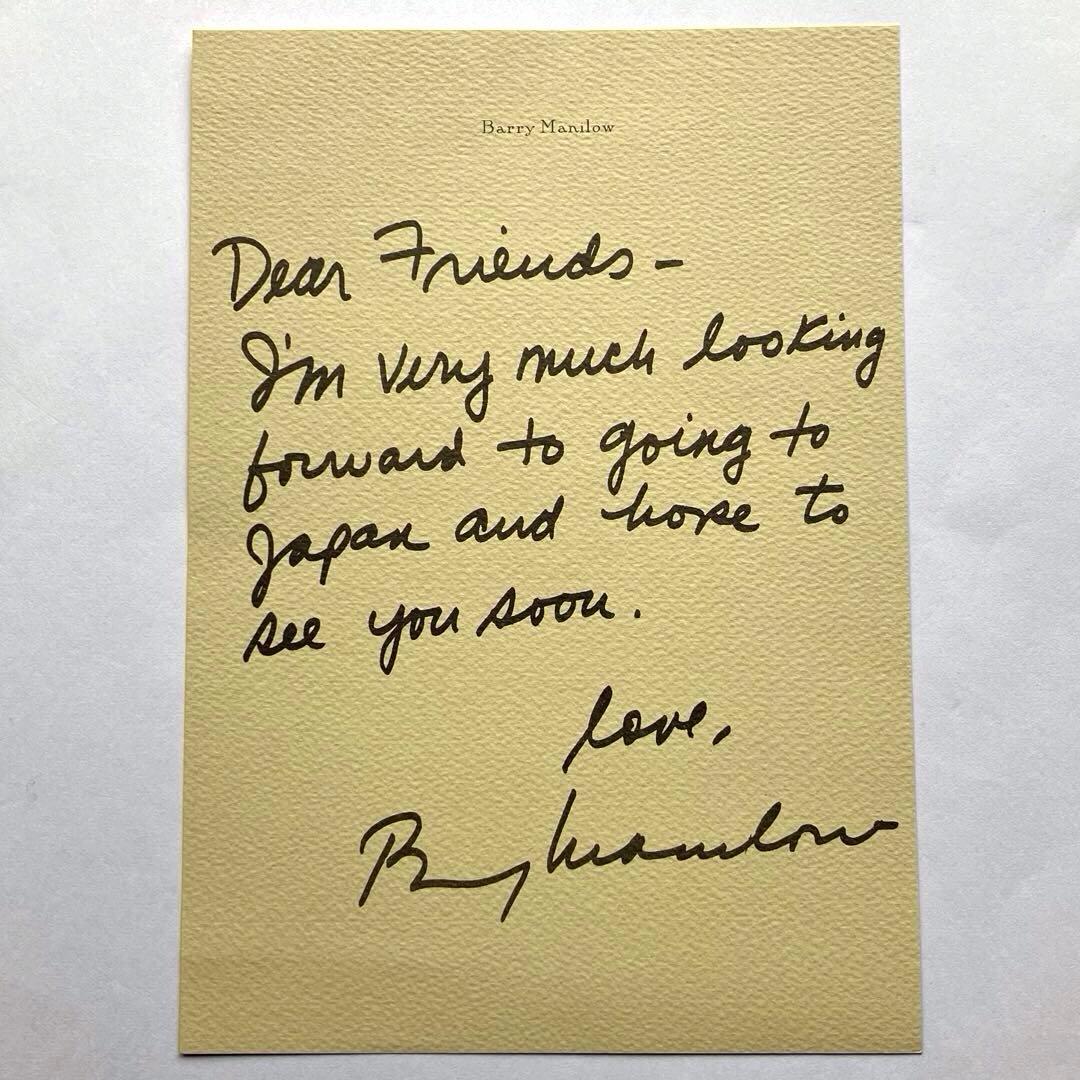 Barry Manilow
Dear Friends -
I'm very much looking
forward to going to
Japan and hope to
see you soon.
love,
Barry Manilow